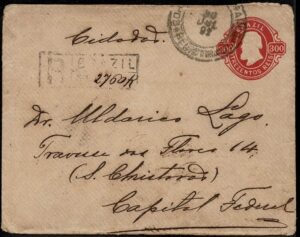 Cidade.
BRAZIL
300 300
TREZENTOS REIS
R BRAZIL
2760R
Dr. Uldarico Lago.
Travessa das Flores 14.
(S. Christovão)
Capital Federal